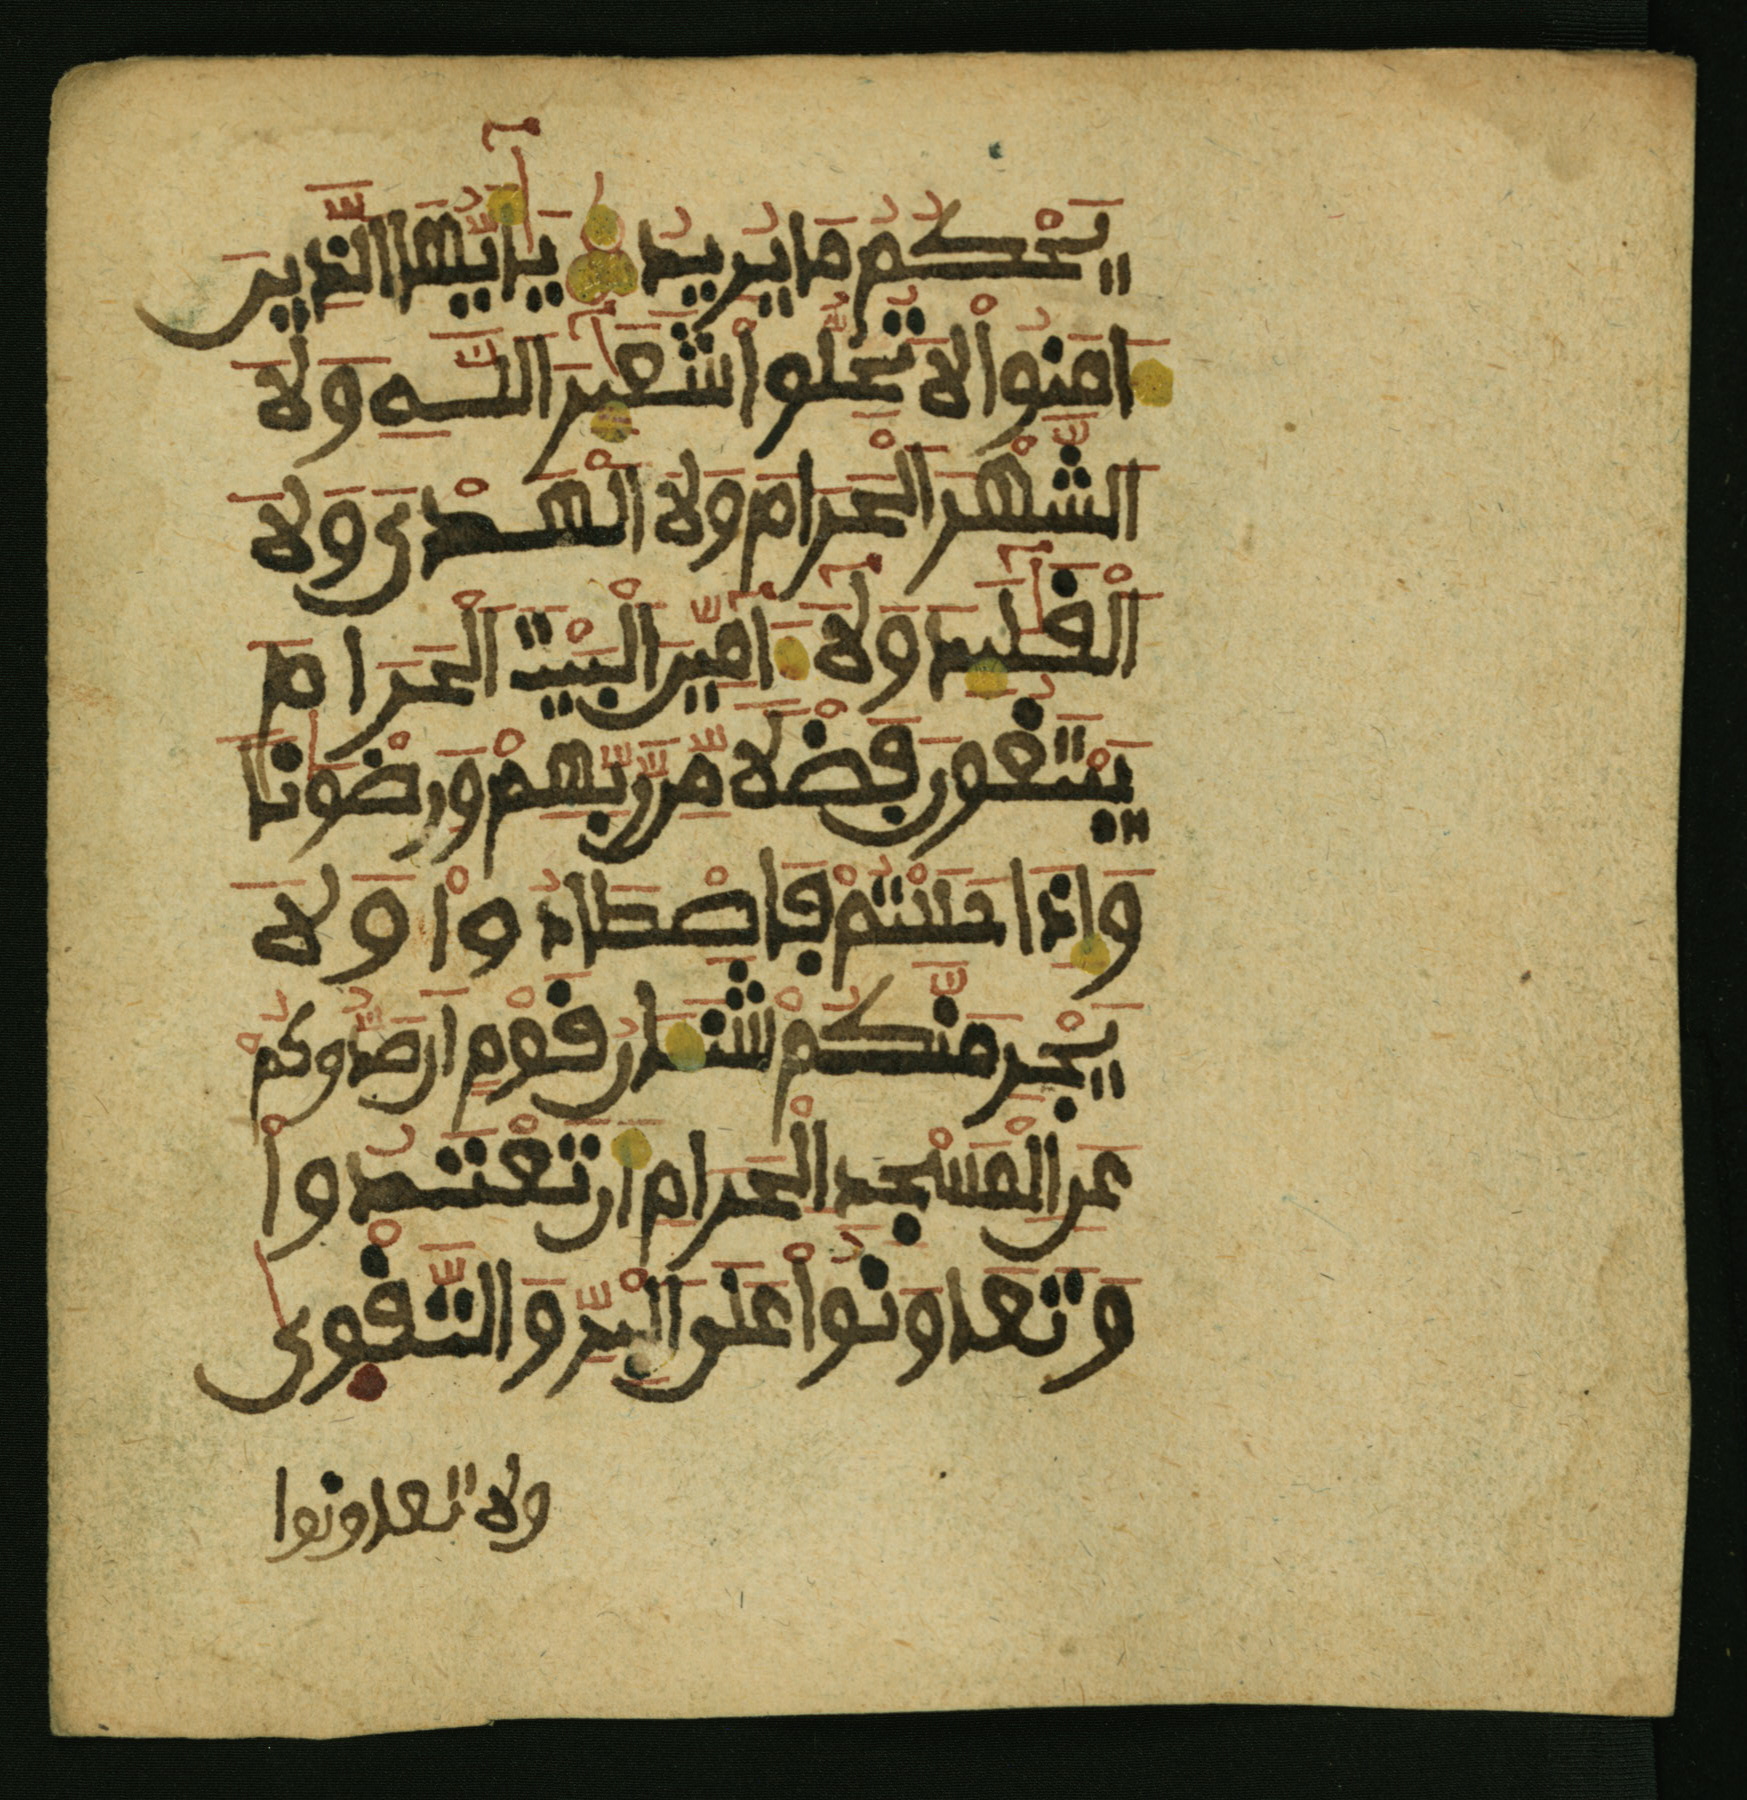 يَحْكُمُ مَا يُرِيدُ يَٰٓأَيُّهَا الَّذِينَ
ءَامَنُواْ لَا تُحِلُّواْ شَعَٰٓئِرَ اللَّهِ وَلَا
الشَّهْرَ الْحَرَامَ وَلَا الْهَدْىَ وَلَا
الْقَلَٰٓئِدَ وَلَآ ءَآمِّينَ الْبَيْتَ الْحَرَامَ
يَبْتَغُونَ فَضْلًا مِّن رَّبِّهِمْ وَرِضْوَٰنًا
وَإِذَا حَلَلْتُمْ فَاصْطَادُواْ وَلَا
يَجْرِمَنَّكُمْ شَنَـَٔانُ قَوْمٍ أَن صَدُّوكُمْ
عَنِ الْمَسْجِدِ الْحَرَامِ أَن تَعْتَدُواْ
وَتَعَاوَنُواْ عَلَى الْبِرِّ وَالتَّقْوَىٰ
ولا تعاونوا